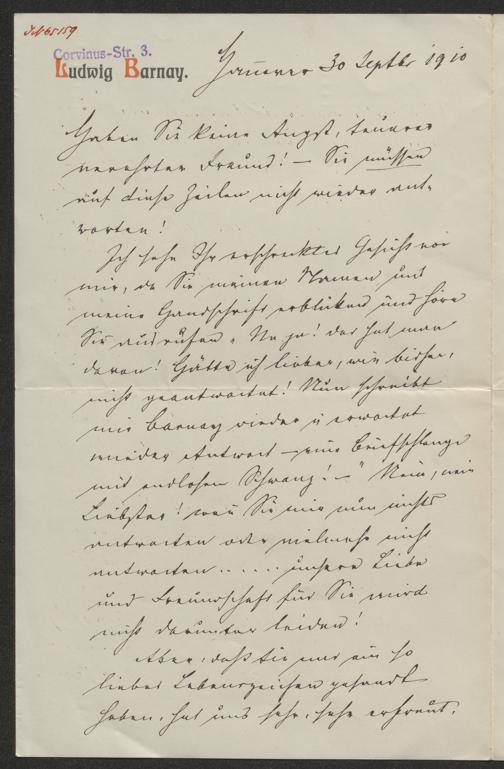 JN 65159
Corvinus-Str. 3.
Ludwig Barnay.
Hannover 30 Septbr 1910
Haben Sie keine Angst, teuerer
verehrter Freund! — Sie müssen
auf diese Zeilen nicht wieder ant-
worten!
Ich sehe Ihr erschrecktes Gesicht vor
mir, da Sie meinen Namen und
meine Handschrift erblicken und höre
Sie ausrufen „Na ja! das hat man
davon! Hätte ich lieber, wie bisher,
nicht geantwortet! Nun schreibt
mir Barnay wieder u erwartet
wieder Antwort — eine Briefschlange
mit endlosem Schwanz! —" Nein, nein
Liebster! wenn Sie mir nun nichts
antworten oder vielmehr nicht
antworten ...... unsere Liebe
und Freundschaft für Sie wird
nicht darunter leiden!
Aber, daß Sie uns ein so
liebes Lebenszeichen gesandt
haben, hat uns sehr, sehr erfreut.